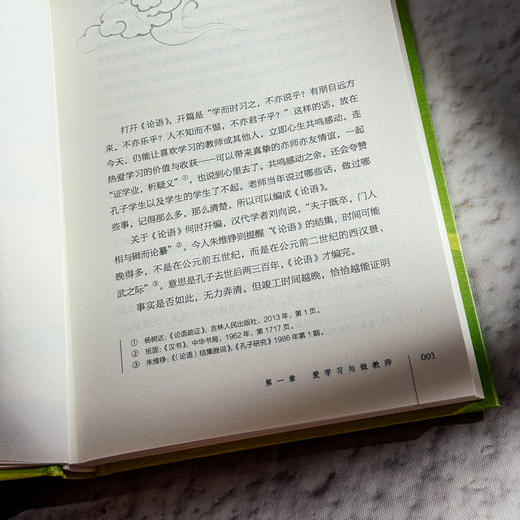 打开《论语》，开篇是“学而时习之，不亦说乎？有朋自远方
来，不亦乐乎？人不知而不愠，不亦君子乎？”这样的话，放在
今天，仍能让喜欢学习的教师或其他人，立即心生共鸣感动，连
热爱学习的价值与收获——可以带来真挚的亦师亦友情谊，一起
“证学业，析疑义”①，也说到心里去了。共鸣感动之余，还会夸赞
孔子学生以及学生的学生了不起。老师当年说过哪些话，做过哪
些事，记得那么多，那么清楚，所以可以编成《论语》。
关于《论语》何时开编，汉代学者刘向说，“夫子既卒，门人
相与辑而论纂”②。今人朱维铮则提醒“《论语》的结集，时间可能
晚得多，不是在公元前五世纪，而是在公元前二世纪的西汉景、
武之际”③。意思是孔子去世后两三百年，《论语》才编完。
事实是否如此，无力弄清。但竣工时间越晚，恰恰越能证明
① 杨树达：《论语疏证》，吉林人民出版社，2013年，第1页。
② 班固：《汉书》，中华书局，1962年，第1717页。
③ 朱维铮：《〈论语〉结集脞说》，《孔子研究》1986年第1期。
第一章 爱学习与做教师 003